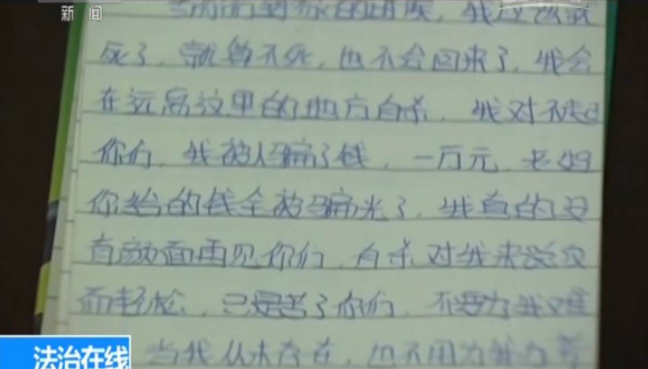 新闻
当你们看到你的时候，我应该就
死了，就算不死，也不会回来了，我会
在远离这里的地方自杀，我对不起
你们，我被人骗了钱，一万元，老妈
你给的钱全被骗光了，我真的没
有颜面再见你们，自杀对我来说反
而轻松，只是苦了你们，不要为我难
当我从未存在，也不用为我
法治在线